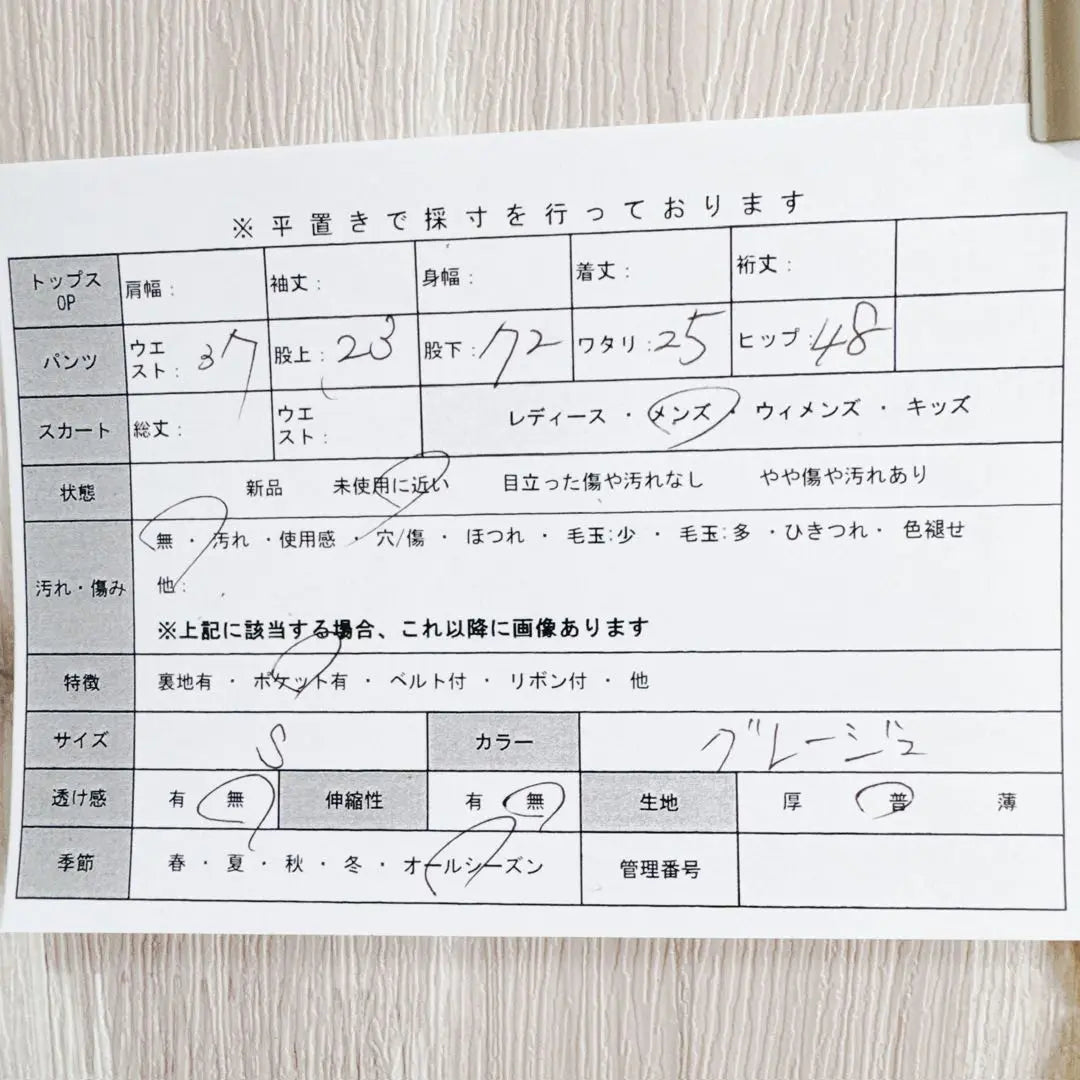 ※平置きで採寸を行っております
トップス OP 肩幅: 袖丈: 身幅: 着丈: 裄丈:
パンツ ウエスト: 37 股上: 23 股下: 72 ワタリ: 25 ヒップ: 48
スカート 総丈: ウエスト: レディース ・ メンズ ・ ウィメンズ ・ キッズ
状態 新品 未使用に近い 目立った傷や汚れなし やや傷や汚れあり
汚れ・傷み 無 ・ 汚れ ・使用感 ・ 穴/傷 ・ ほつれ ・ 毛玉:少 ・ 毛玉:多 ・ひきつれ・ 色褪せ
他:
※上記に該当する場合、これ以降に画像あります
特徴 裏地有 ・ ポケット有 ・ ベルト付 ・ リボン付 ・ 他
サイズ S カラー グレージュ
透け感 有 無 伸縮性 有 無 生地 厚 普 薄
季節 春 ・ 夏 ・ 秋 ・ 冬 ・ オールシーズン 管理番号